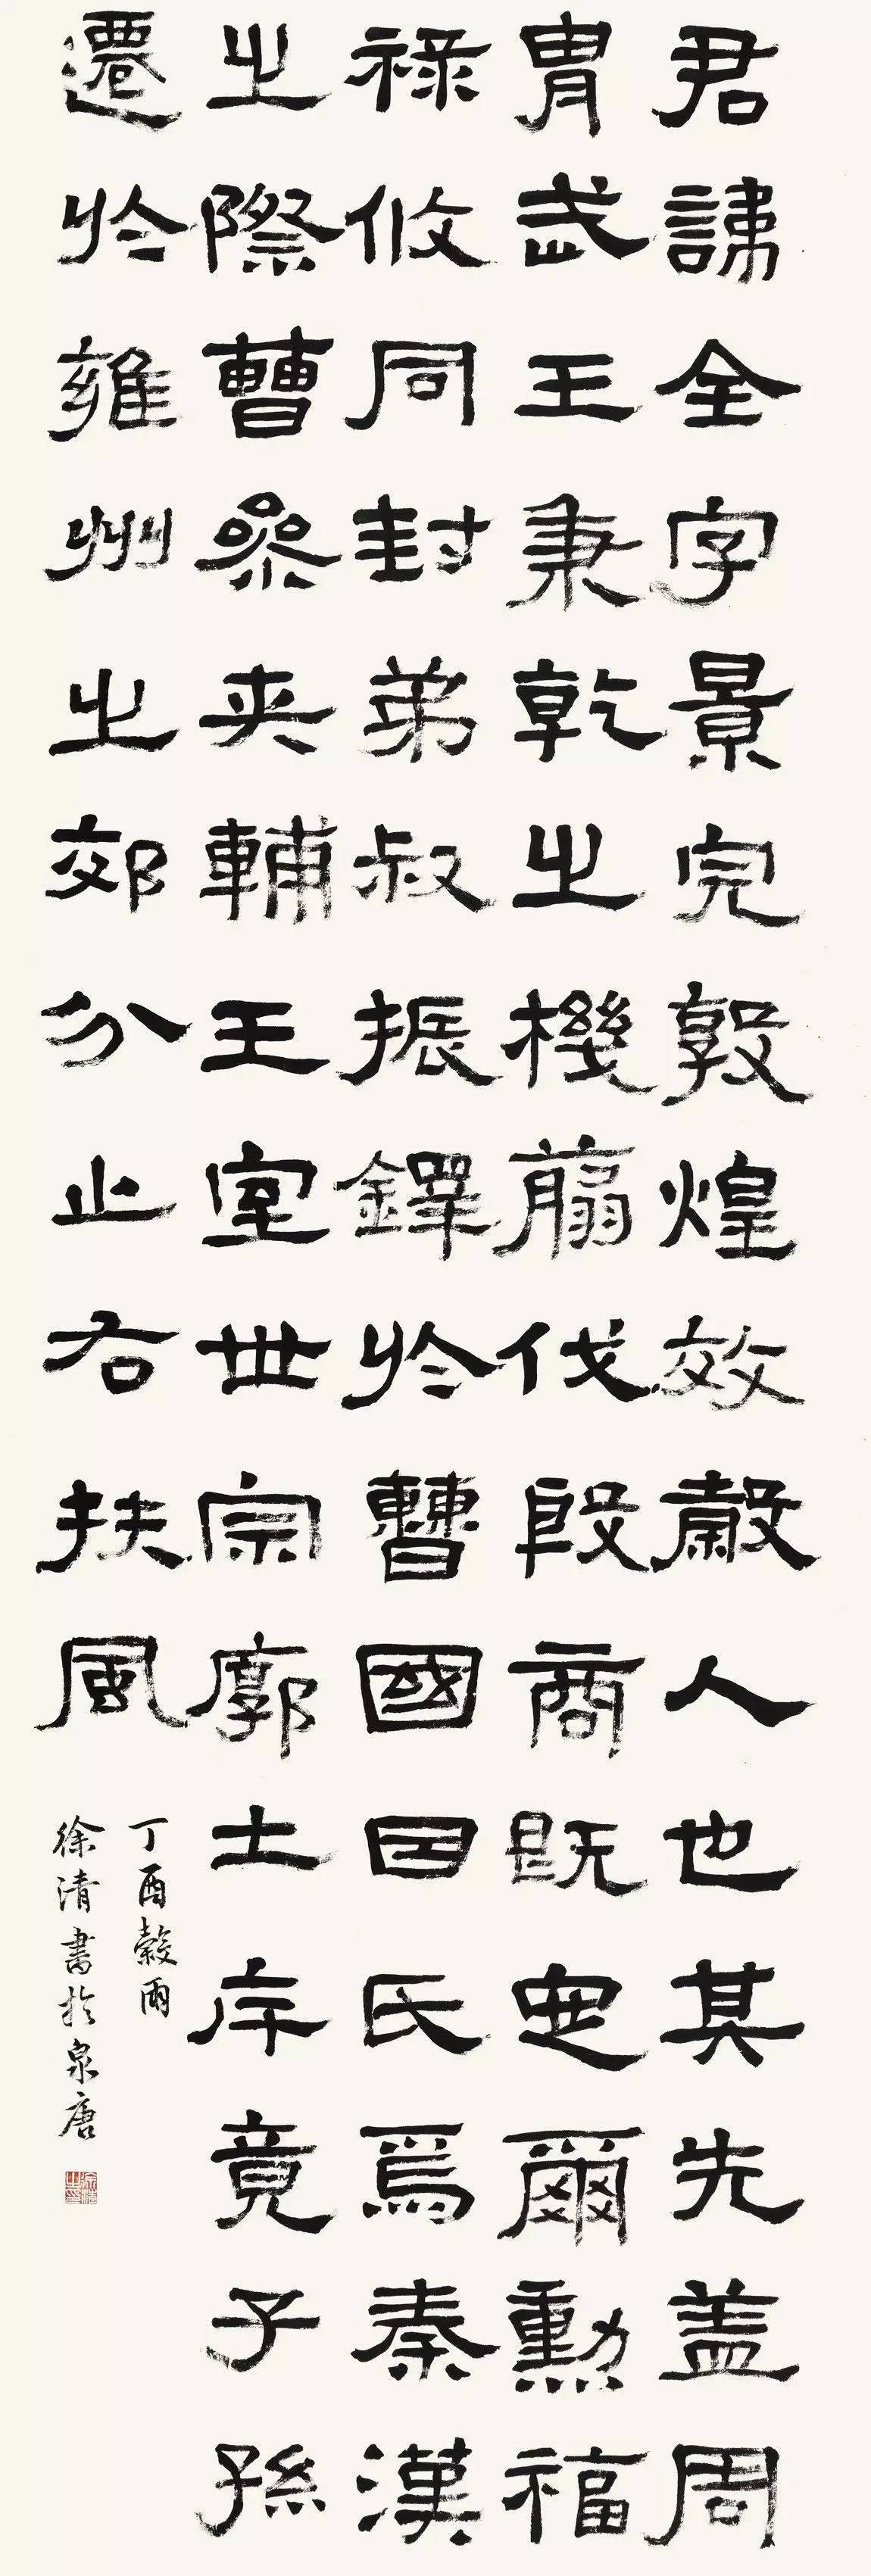 君諱全字景完敦煌效穀人也其先盖周
胄武王秉乾之機翦伐殷商既定爾勲福
禄攸同封弟叔振鐸於曹國因氏焉秦漢
之際曹参夹輔王室世宗廓土斥竟子孫
遷於雍州之郊分止右扶風
丁酉穀雨
徐清書於泉唐